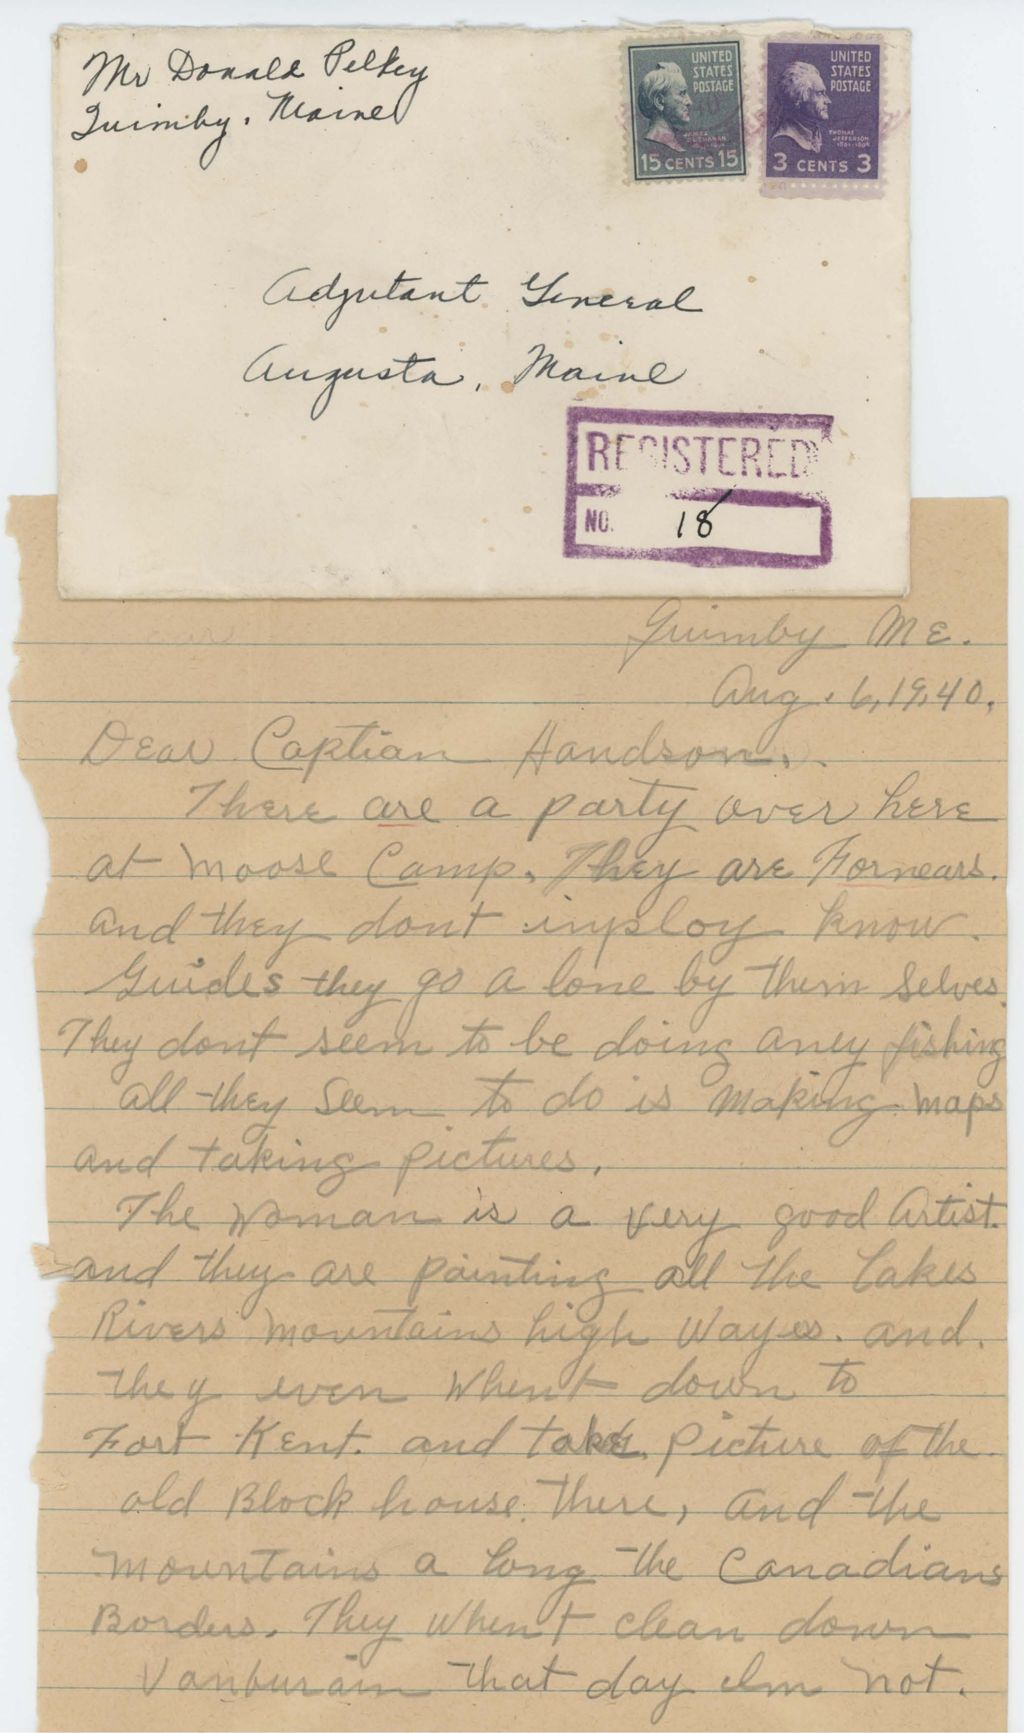 Mr Donald Pelkey
Quimby, Maine
UNITED
STATES
POSTAGE
JAMES
BUCHANAN
15 CENTS 15
UNITED
STATES
POSTAGE
THOMAS
JEFFERSON
1801-1809
3 CENTS 3
Adjutant General
Augusta, Maine
REGISTERED
NO. 18
Quimby ME.
Aug. 6, 19,40.
Dear Captian Handson.
There are a party over here
at Moose Camp. They are Fornears.
and they dont imploy know.
Guides they go a lone by them selves.
They dont seem to be doing aney fishing
all they seem to do is making maps
and taking pictures.
The Woman is a very good Artist.
and they are painting all the lakes
Rivers mountains high Wayes. and.
they even When't down to
Fort Kent. and take picture of the
old Block house. there, and the
mountains a long the Canadians
Borders. They When't clean down
Vanburain that day Im not.